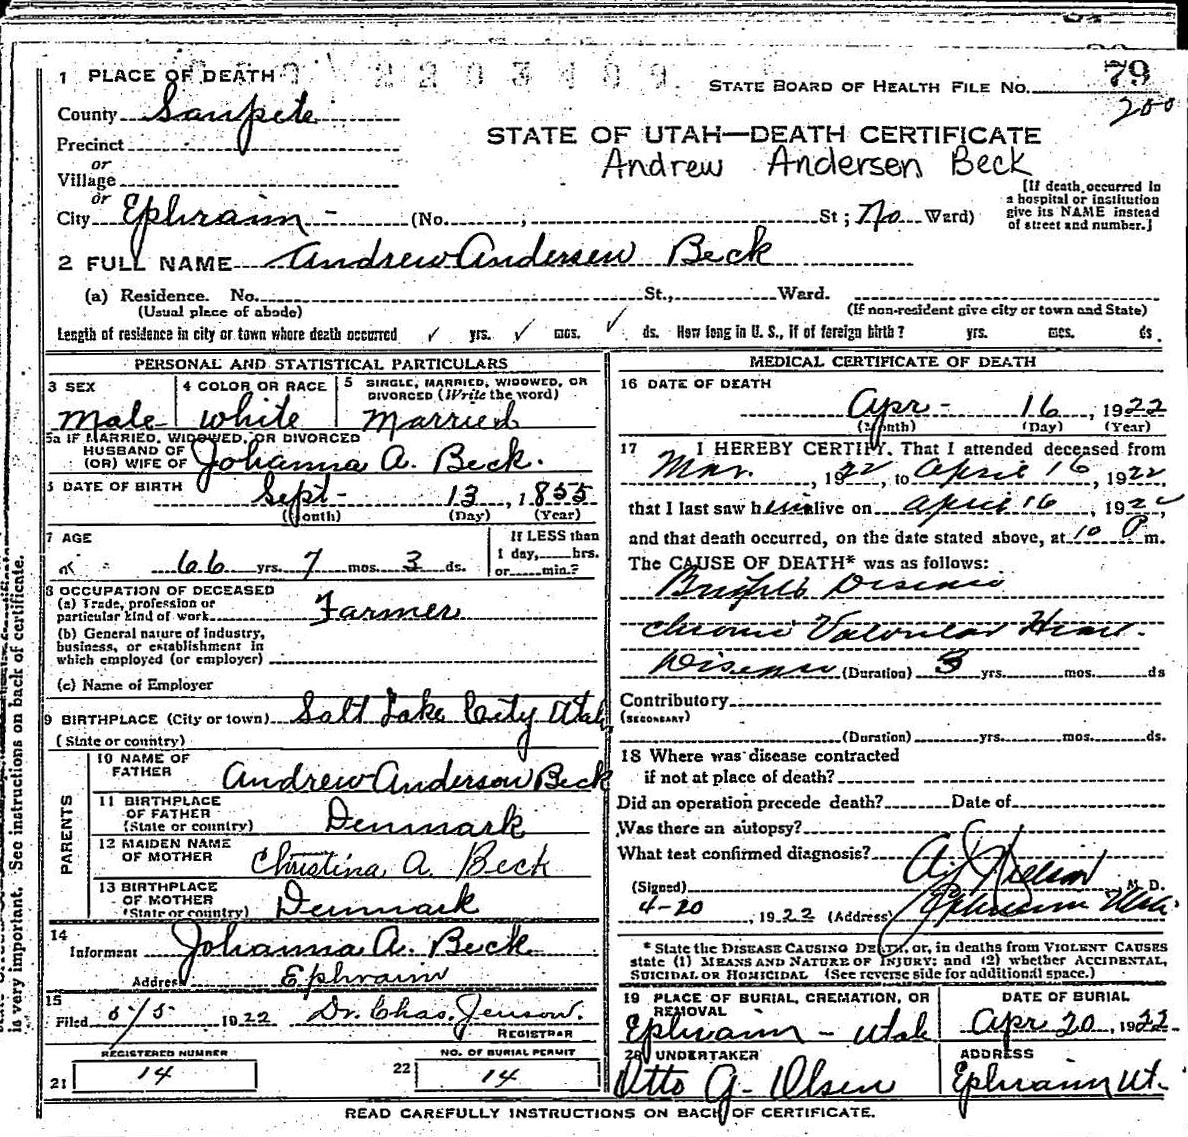 1 PLACE OF DEATH
STATE BOARD OF HEALTH FILE NO. 79
200
County Sanpete
STATE OF UTAH—DEATH CERTIFICATE
Precinct
Andrew Andersen Beck
or
Village
or
City Ephraim - (No. ; St; No Ward)
[If death occurred in
a hospital or institution
give its NAME instead
of street and number.]
2 FULL NAME Andrew Andersen Beck
(a) Residence. No. St., Ward.
(Usual place of abode) (If non-resident give city or town and State)
Length of residence in city or town where death occurred ✓ yrs. ✓ mos. ✓ ds. How long in U. S., if of foreign birth? yrs. mos. ds.
PERSONAL AND STATISTICAL PARTICULARS
3 SEX 4 COLOR OR RACE 5 SINGLE, MARRIED, WIDOWED, OR
DIVORCED (Write the word)
Male white Married
5a IF MARRIED, WIDOWED, OR DIVORCED
HUSBAND OF
(OR) WIFE OF Johanna A. Beck.
DATE OF BIRTH Sept- 13, 1855
(Month) (Day) (Year)
7 AGE If LESS than
1 day, hrs.
66 yrs. 7 mos. 3 ds. or min.?
8 OCCUPATION OF DECEASED
(a) Trade, profession or
particular kind of work Farmer
(b) General nature of industry,
business, or establishment in
which employed (or employer)
(c) Name of Employer
9 BIRTHPLACE (City or town) Salt Lake City Utah
(State or country)
PARENTS
10 NAME OF
FATHER Andrew Anderson Beck
11 BIRTHPLACE
OF FATHER
(State or country) Denmark
12 MAIDEN NAME
OF MOTHER Christina A. Beck
13 BIRTHPLACE
OF MOTHER
(State or country) Denmark
14
Informant Johanna A. Beck
Address Ephraim
15
Filed 5/5- 1922 Dr. Chas. Jenson.
REGISTRAR
REGISTERED NUMBER NO. OF BURIAL PERMIT
21 14 22 14
MEDICAL CERTIFICATE OF DEATH
16 DATE OF DEATH
Apr- 16, 1922
(Month) (Day) (Year)
17 I HEREBY CERTIFY, That I attended deceased from
Mar. , 1922, to April 16, 1922
that I last saw him alive on April 16, 192
and that death occurred, on the date stated above, at 10 P m.
The CAUSE OF DEATH* was as follows:
Brights Disease
Chronic Valvular Heart
Disease (Duration) 3 yrs. mos. ds
Contributory
(SECONDARY)
(Duration) yrs. mos. ds.
18 Where was disease contracted
if not at place of death?
Did an operation precede death? Date of
Was there an autopsy?
What test confirmed diagnosis?
(Signed) A. J. Nielson M. D.
4-20, 1922 (Address) Ephraim Utah.
* State the DISEASE CAUSING DEATH, or, in deaths from VIOLENT CAUSES
state (1) MEANS AND NATURE OF INJURY; and (2) whether ACCIDENTAL,
SUICIDAL OR HOMICIDAL (See reverse side for additional space.)
19 PLACE OF BURIAL, CREMATION, OR DATE OF BURIAL
REMOVAL
Ephraim - Utah Apr 20, 1922
20 UNDERTAKER ADDRESS
Otto G. Olsen Ephraim Ut.
READ CAREFULLY INSTRUCTIONS ON BACK OF CERTIFICATE.
is very important. See instructions on back of certificate.